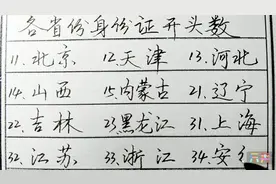 各省份身份证开头数
11.北京 12天津 13.河北
14.山西 15.内蒙古 21.辽宁
22.吉林 23黑龙江 31.上海
32.江苏 33.浙江 34.安